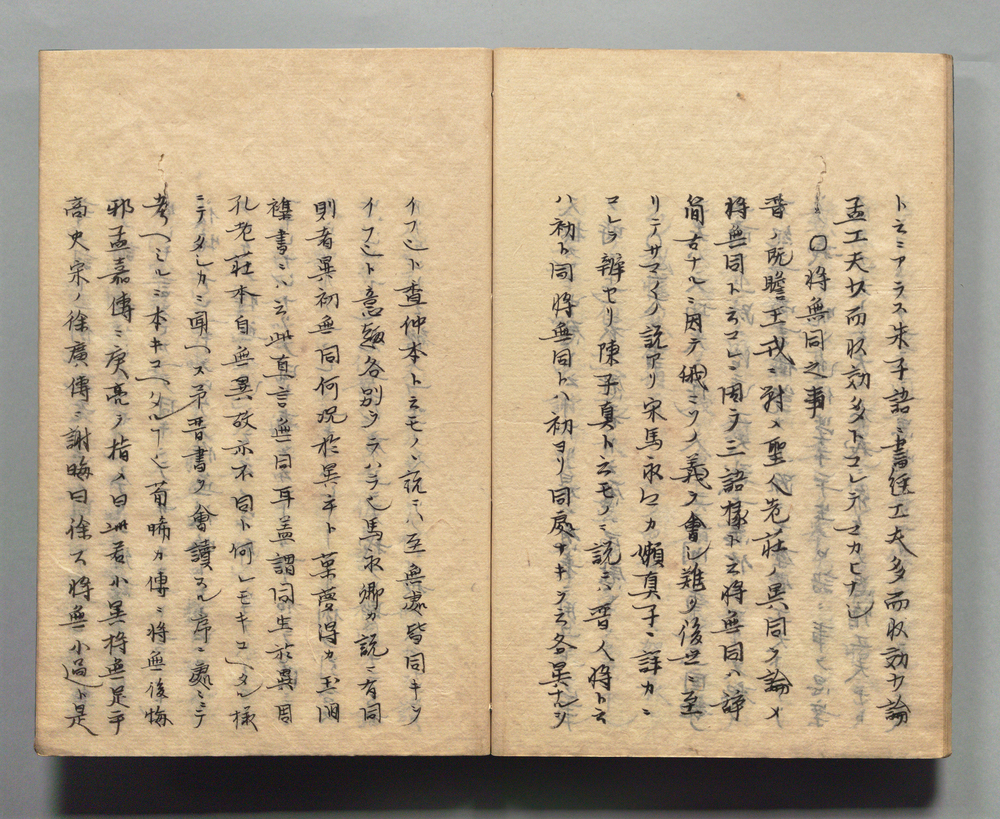 ト云ニアラス朱子語ニ書經工夫多而収効少論
孟工夫少而収効多トコレテマカヒナシ
○将無同之事
晋ノ阮瞻王戎ニ對メ聖人老莊ノ異同ヲ論メ
将無同ト云コレニ因ヲ三語掾ト云将無同ハ諍
簡古ナルニ因テ俄ニソノ義ヲ會シ難シ後世ニ至
リテサマ〱ノ説アリ宋馬永卿カ嬾真子ニ詳カニ
コレヲ辨セリ陳子真ト云モノヽ説ニハ晋人将ト云
ハ初ト同将無同トハ初ヨリ同處ナキヲ云各異ナルヲ
イフ也ト査仲本ト云モノヽ説ニハ至無處皆同キヲ
イフ也ト意趣各別ヲラハラ也馬永卿カ説ニ有同
則有異初無同何況於異乎ト葉夢得カ玉澗
襍書ニハ云此直言無同耳蓋謂同生於異周
孔老莊本自無異故亦不同ト何レモキコヘタル樣
ニテタシカニ聞ヘス予晋書ヲ會讀スル序ニ處ミテ
考ヘミルニ本キコヘタルヿ也荀晞カ傳ニ将無後悔
邪孟嘉傳ニ庾亮ヲ指メ曰此君小異将無是乎
高史宋ノ徐廣傳ニ謝晦曰徐公将無小過ト是